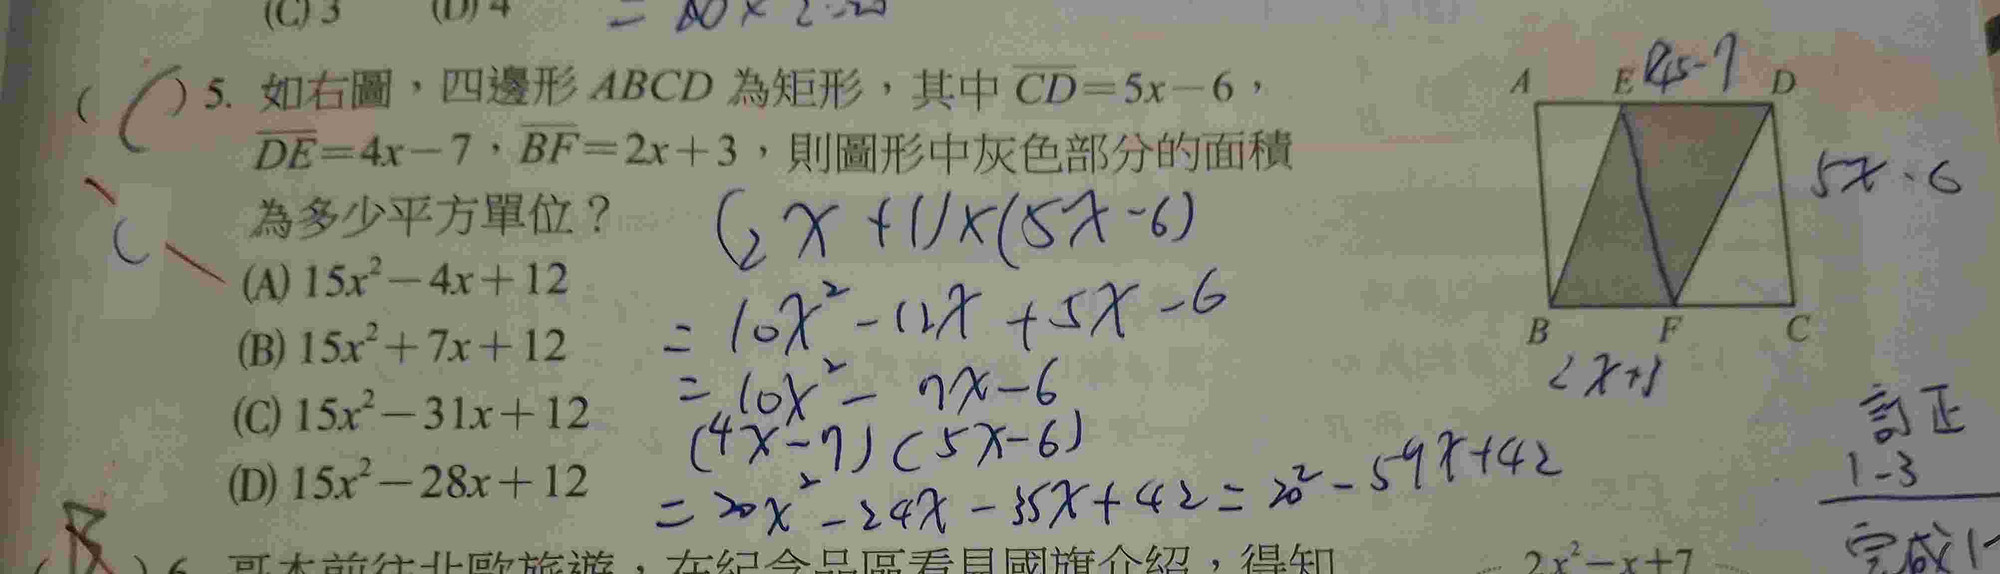 (C) 3 (D) 4
( C ) 5. 如右圖，四邊形 ABCD 為矩形，其中 CD＝5x－6，
DE＝4x－7，BF＝2x＋3，則圖形中灰色部分的面積
為多少平方單位？
(A) 15x²－4x＋12
(B) 15x²＋7x＋12
(C) 15x²－31x＋12
(D) 15x²－28x＋12
(2x+1)x(5x-6)
= 10x²-12x+5x-6
= 10x²-7x-6
(4x-7)(5x-6)
= 20x²-24x-35x+42 = 20²-59x+42
A E D
5x-6
B F C
訂正
1-3
完成1-
6. 哥本前往北歐旅遊，在紀念品區看見國旗介紹，得知
2x²－x＋7